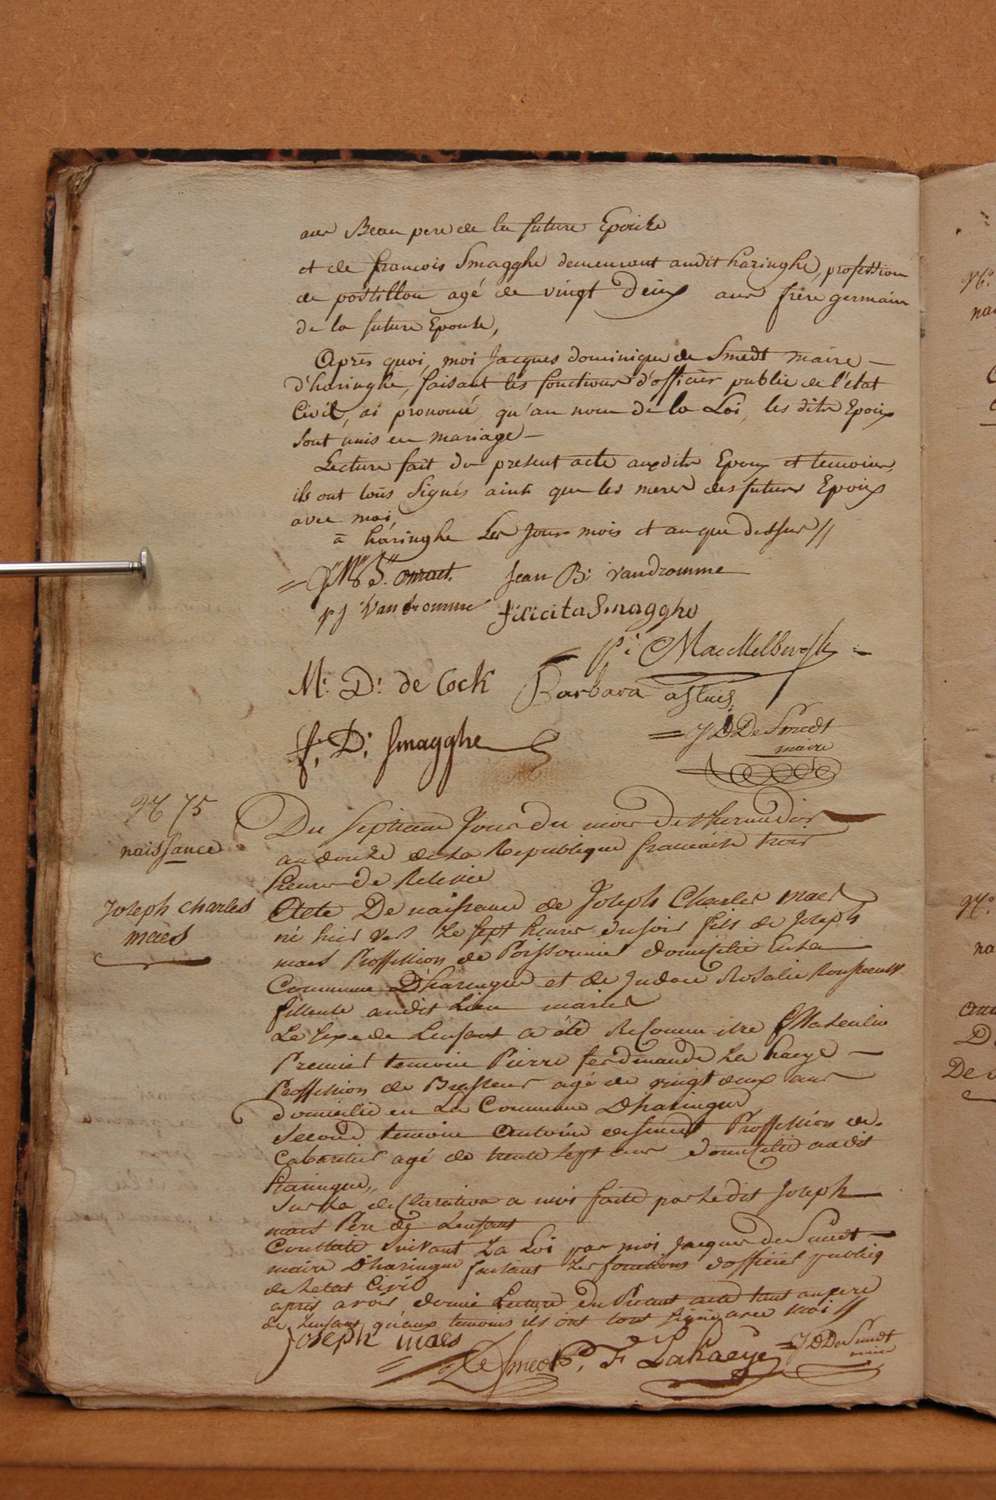 ans Beau pere de la future Epouse
et de francois Smagghe demeurant audit haringhe, profession
de postillon agé de vingt deux ans frère germain
de la future Epouse,
Après quoi, moi Jacques dominique de Smedt maire
d'haringhe, faisant les fonctions d'officier public de l'état
Civil, ai prononcé, qu'au nom de la Loi, les dits Epoux
sont unis en mariage
Lecture fait du present acte auxdits Epoux et temoins,
ils ont tous signés ainsi que les meres des futurs Epoux
avec moi,
à haringhe Les Jour mois et an que dessus //
Jean B: vandromme
p j Vandromme felicita Smagghe
p: Maeckelbergh
M: D: de Cock Barbara
f: D: Smagghe
J D De Smedt
maire
N° 75
naissance
Joseph charles
maes
Du Septieme Jour du mois de thermidor
an douze de la Republique francaise trois
heures de Relevée
Acte De naissance de Joseph Charles maes
né hier vers Le sept heures du soir fils de Joseph
maes Proffession de Poissonnier domicilié en la
Commune D'haringue et de Rosalie
fileuse audit Lieu mariés
Le sexe de L'enfant a été Reconnu etre Masculin
Premier temoin Pierre ferdinande La haeye
Proffession de Brasseur agé de vingt deux ans
domicilié en La Commune D'haringue
Second temoin Antoine desmedt Proffession de
Cabaretier agé de trente sept ans domicilié audit
haringue,
Sur la declaration a moi faite par Ledit Joseph
maes Pere de L'enfant
Constaté Suivant La Loi par moi Jacques De Smedt
maire D'haringue faisant Les fonctions d'officier publiq
de Letat Civil
apres avoir donné Lecture du Present acte tant au pere
de L'enfant qu'aux temoins ils ont tous signé avec moi //
Joseph maes
De Smedt P. F Lahaeye J D De Smedt
maire